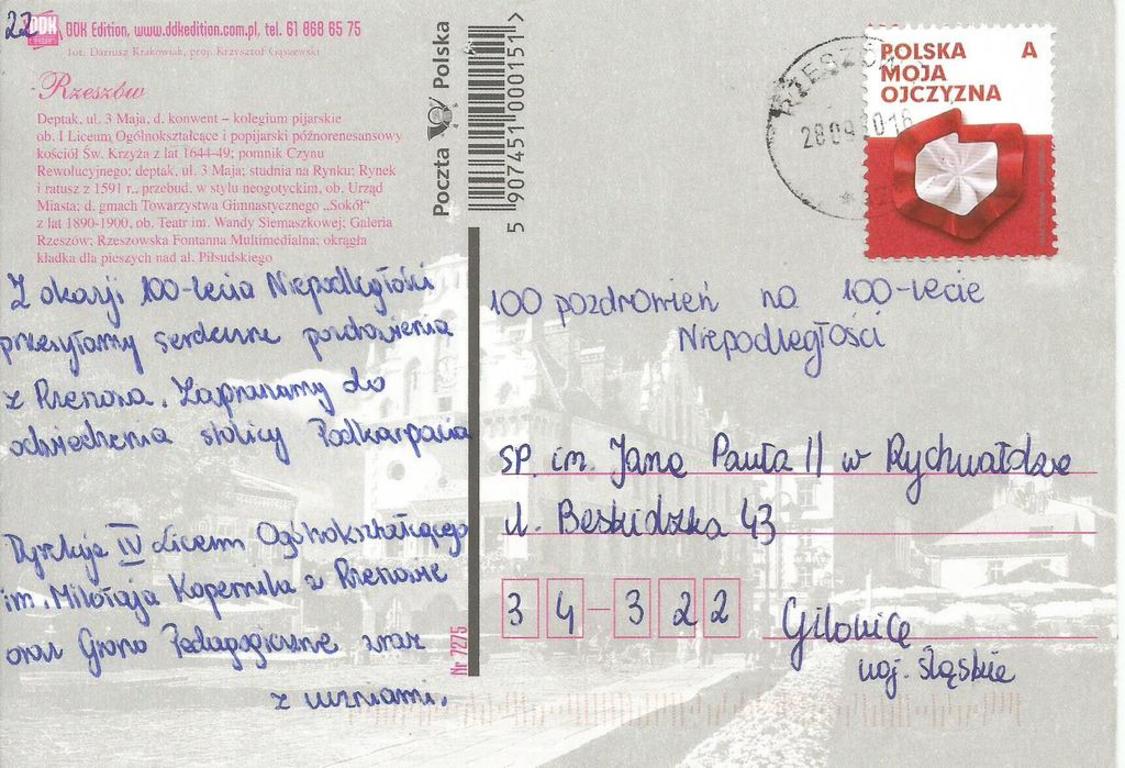 22
DDK Edition, www.ddkedition.com.pl, tel. 61 868 65 75
fot. Dariusz Krakowiak, proj. Krzysztof Gąszewski
Rzeszów
Deptak, ul. 3 Maja, d. konwent – kolegium pijarskie
ob. I Liceum Ogólnokształcące i popijarski późnorenesansowy
kościół Św. Krzyża z lat 1644-49; pomnik Czynu
Rewolucyjnego; deptak, ul. 3 Maja; studnia na Rynku; Rynek
i ratusz z 1591 r., przebud. w stylu neogotyckim, ob. Urząd
Miasta; d. gmach Towarzystwa Gimnastycznego „Sokół”
z lat 1890-1900, ob. Teatr im. Wandy Siemaszkowej; Galeria
Rzeszów; Rzeszowska Fontanna Multimedialna; okrągła
kładka dla pieszych nad al. Piłsudskiego
Z okazji 100-lecia Niepodległości
przesyłamy serdeczne pozdrowienia
z Rzeszowa. Zapraszamy do
odwiedzenia stolicy Podkarpacia
Dyrekcja IV Liceum Ogólnokształcącego
im. Mikołaja Kopernika w Rzeszowie
oraz Grono Pedagogiczne wraz
z uczniami.
Nr 7275
Poczta Polska
5 907451 000151
RZESZÓW
28 09
POLSKA A
MOJA
OJCZYZNA
100 pozdrowień na 100-lecie
Niepodległości
SP. im. Jana Pawła II w Rychwałdzie
ul. Beskidzka 43
34-322 Gilowice
woj. śląskie